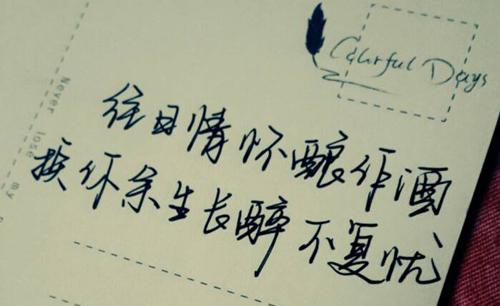 Colorful Days
Never lose
my
往日情怀酿作酒
换你余生长醉不复忧